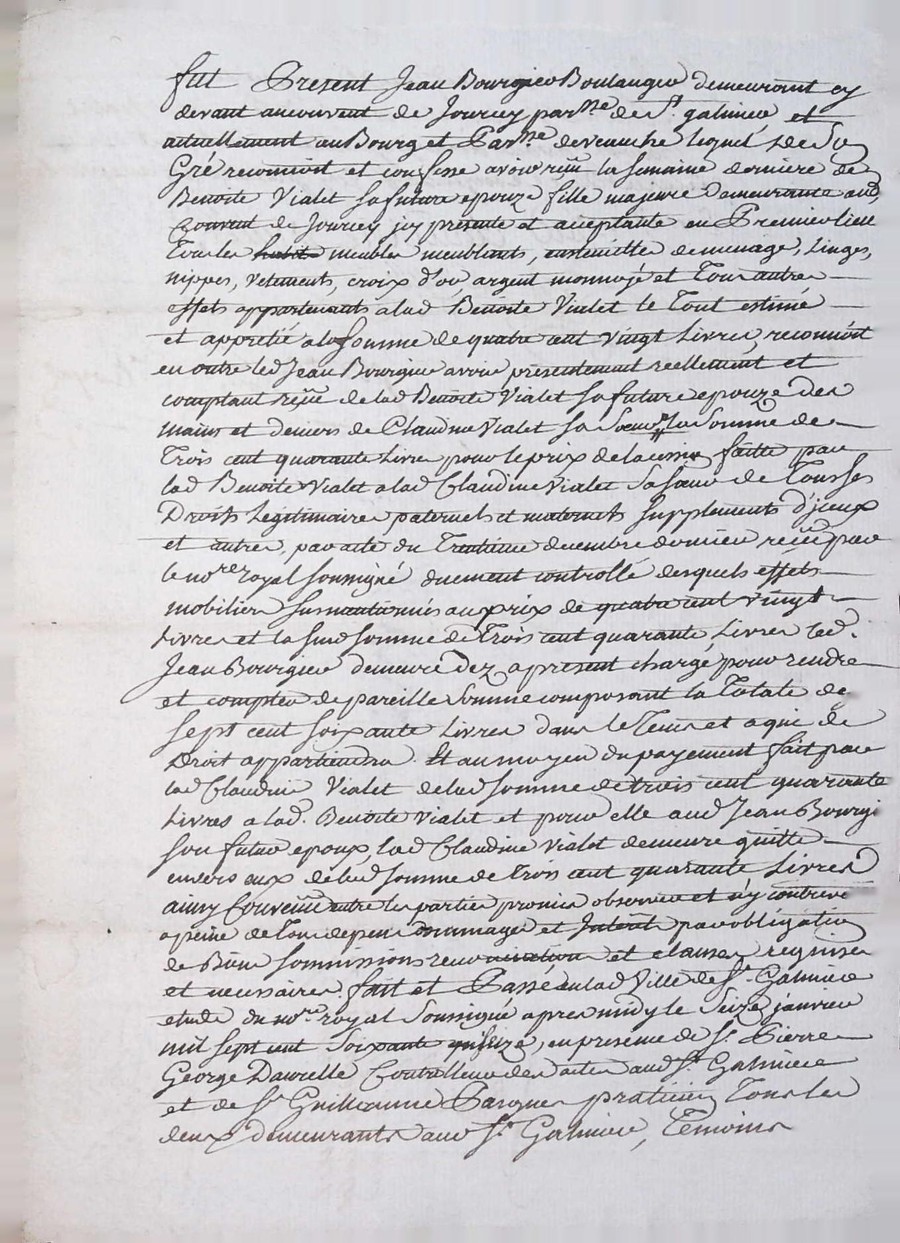 fut Present Jean Bourgier Boulanger demeurant cy
devant au couvent de Jourcey parsse de St. galmier et
actuellement au Bourg et Parsse de veauche lequel de Son
Gré reconnoit et confesse avoir reçu la semaine derniere de
Benoite Vialet sa future epouze fille majeure Demeurante aud.
Couvent de Jourcey icy presente et acceptante en Premier lieu
Tous les meubles meublants, ustencilles de menage, Linges,
nippes, vetements, croix d'or argent monnoyé et Tous autres
effets appartenants a lad. Benoite Vialet le Tout estimé
et apprétié a la Somme de quatre cent vingt Livres, reconnoit
en outre led. Jean Bourgier avoir presentement reellement et
comptant reçu de lad. Benoite Vialet sa future epouze des
mains et deniers de Claudine Vialet sa Soeur la Somme de
Trois cent quarante Livres pour le prix de la cession faitte par
lad. Benoite Vialet a lad. Claudine Vialet Sa Soeur de Tous ses
Droits Legitimaires paternels et maternels supplements d'jceux
et autres, par acte du Trentieme decembre dernier reçu par
le nore royal soussigné duement controllé desquels effets
mobiliers susmentionnés au prix de quatre cent vingt
Livres et la susd. somme de Trois cent quarante Livres led.
Jean Bourgier demeure dez apresent chargé pour rendre
et compter de pareille Somme composant la Totale de
Sept cent soixante Livres dans le Tems et a qui de
Droit appartiendra. Et au moyen du payement fait par
lad. Claudine Vialet de lad. somme de trois cent quarante
Livres a lad. Benoite Vialet et pour elle aud. Jean Bourgi
son futur epoux, lad. Claudine Vialet demeure quitte
envers eux de lad. somme de Trois cent quarante Livres
ainsy Convenu entre les parties promis observer et n'y contreve
a peine de Tous depens dommages et Interet par obligation
de Biens soumissions renonciations et clauses requises
et necessaires fait et Passé en lad. Ville de St. Galmier
etude du nore royal Soussigné apres midy le Seize janvier
mil sept cent Soixante, en presence de Sr. Pierre
George Daurelle Controlleur des actes aud. St. Galmier
et de Sr. Guillaume Parques praticien Tous les
deux Demeurants aud. St. Galmier, Temoins